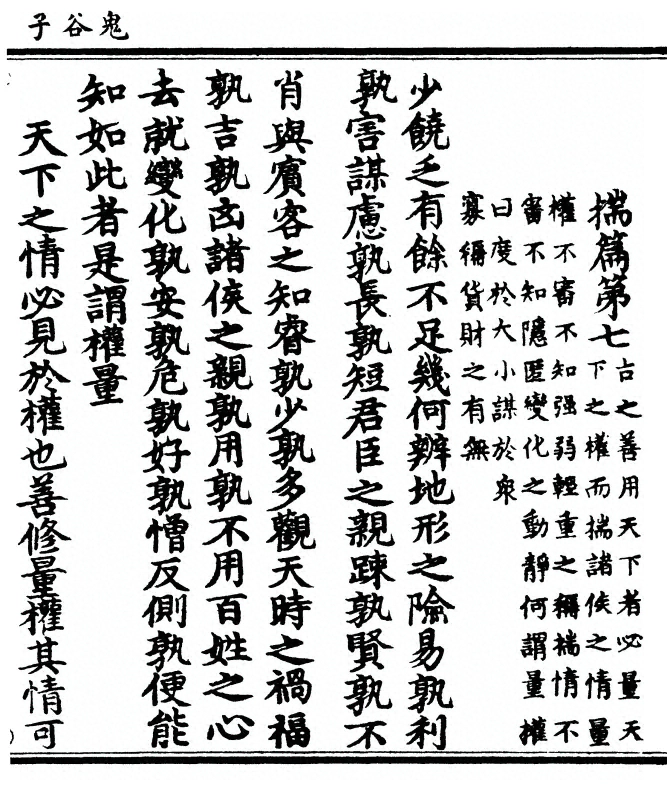 鬼谷子
揣篇第七古之善用天下者必量天
下之權而揣諸侯之情量
權不審不知强弱輕重之稱揣情不
審不知隱匿變化之動靜何謂量權
曰度於大小謀於衆
寡稱貨財之有無
少饒乏有餘不足幾何辨地形之險易孰利
孰害謀慮孰長孰短君臣之親踈孰賢孰不
肖與賓客之知睿孰少孰多觀天時之禍福
孰吉孰凶諸侯之親孰用孰不用百姓之心
去就變化孰安孰危孰好孰憎反側孰便能
知如此者是謂權量
天下之情必見於權也善修量權其情可